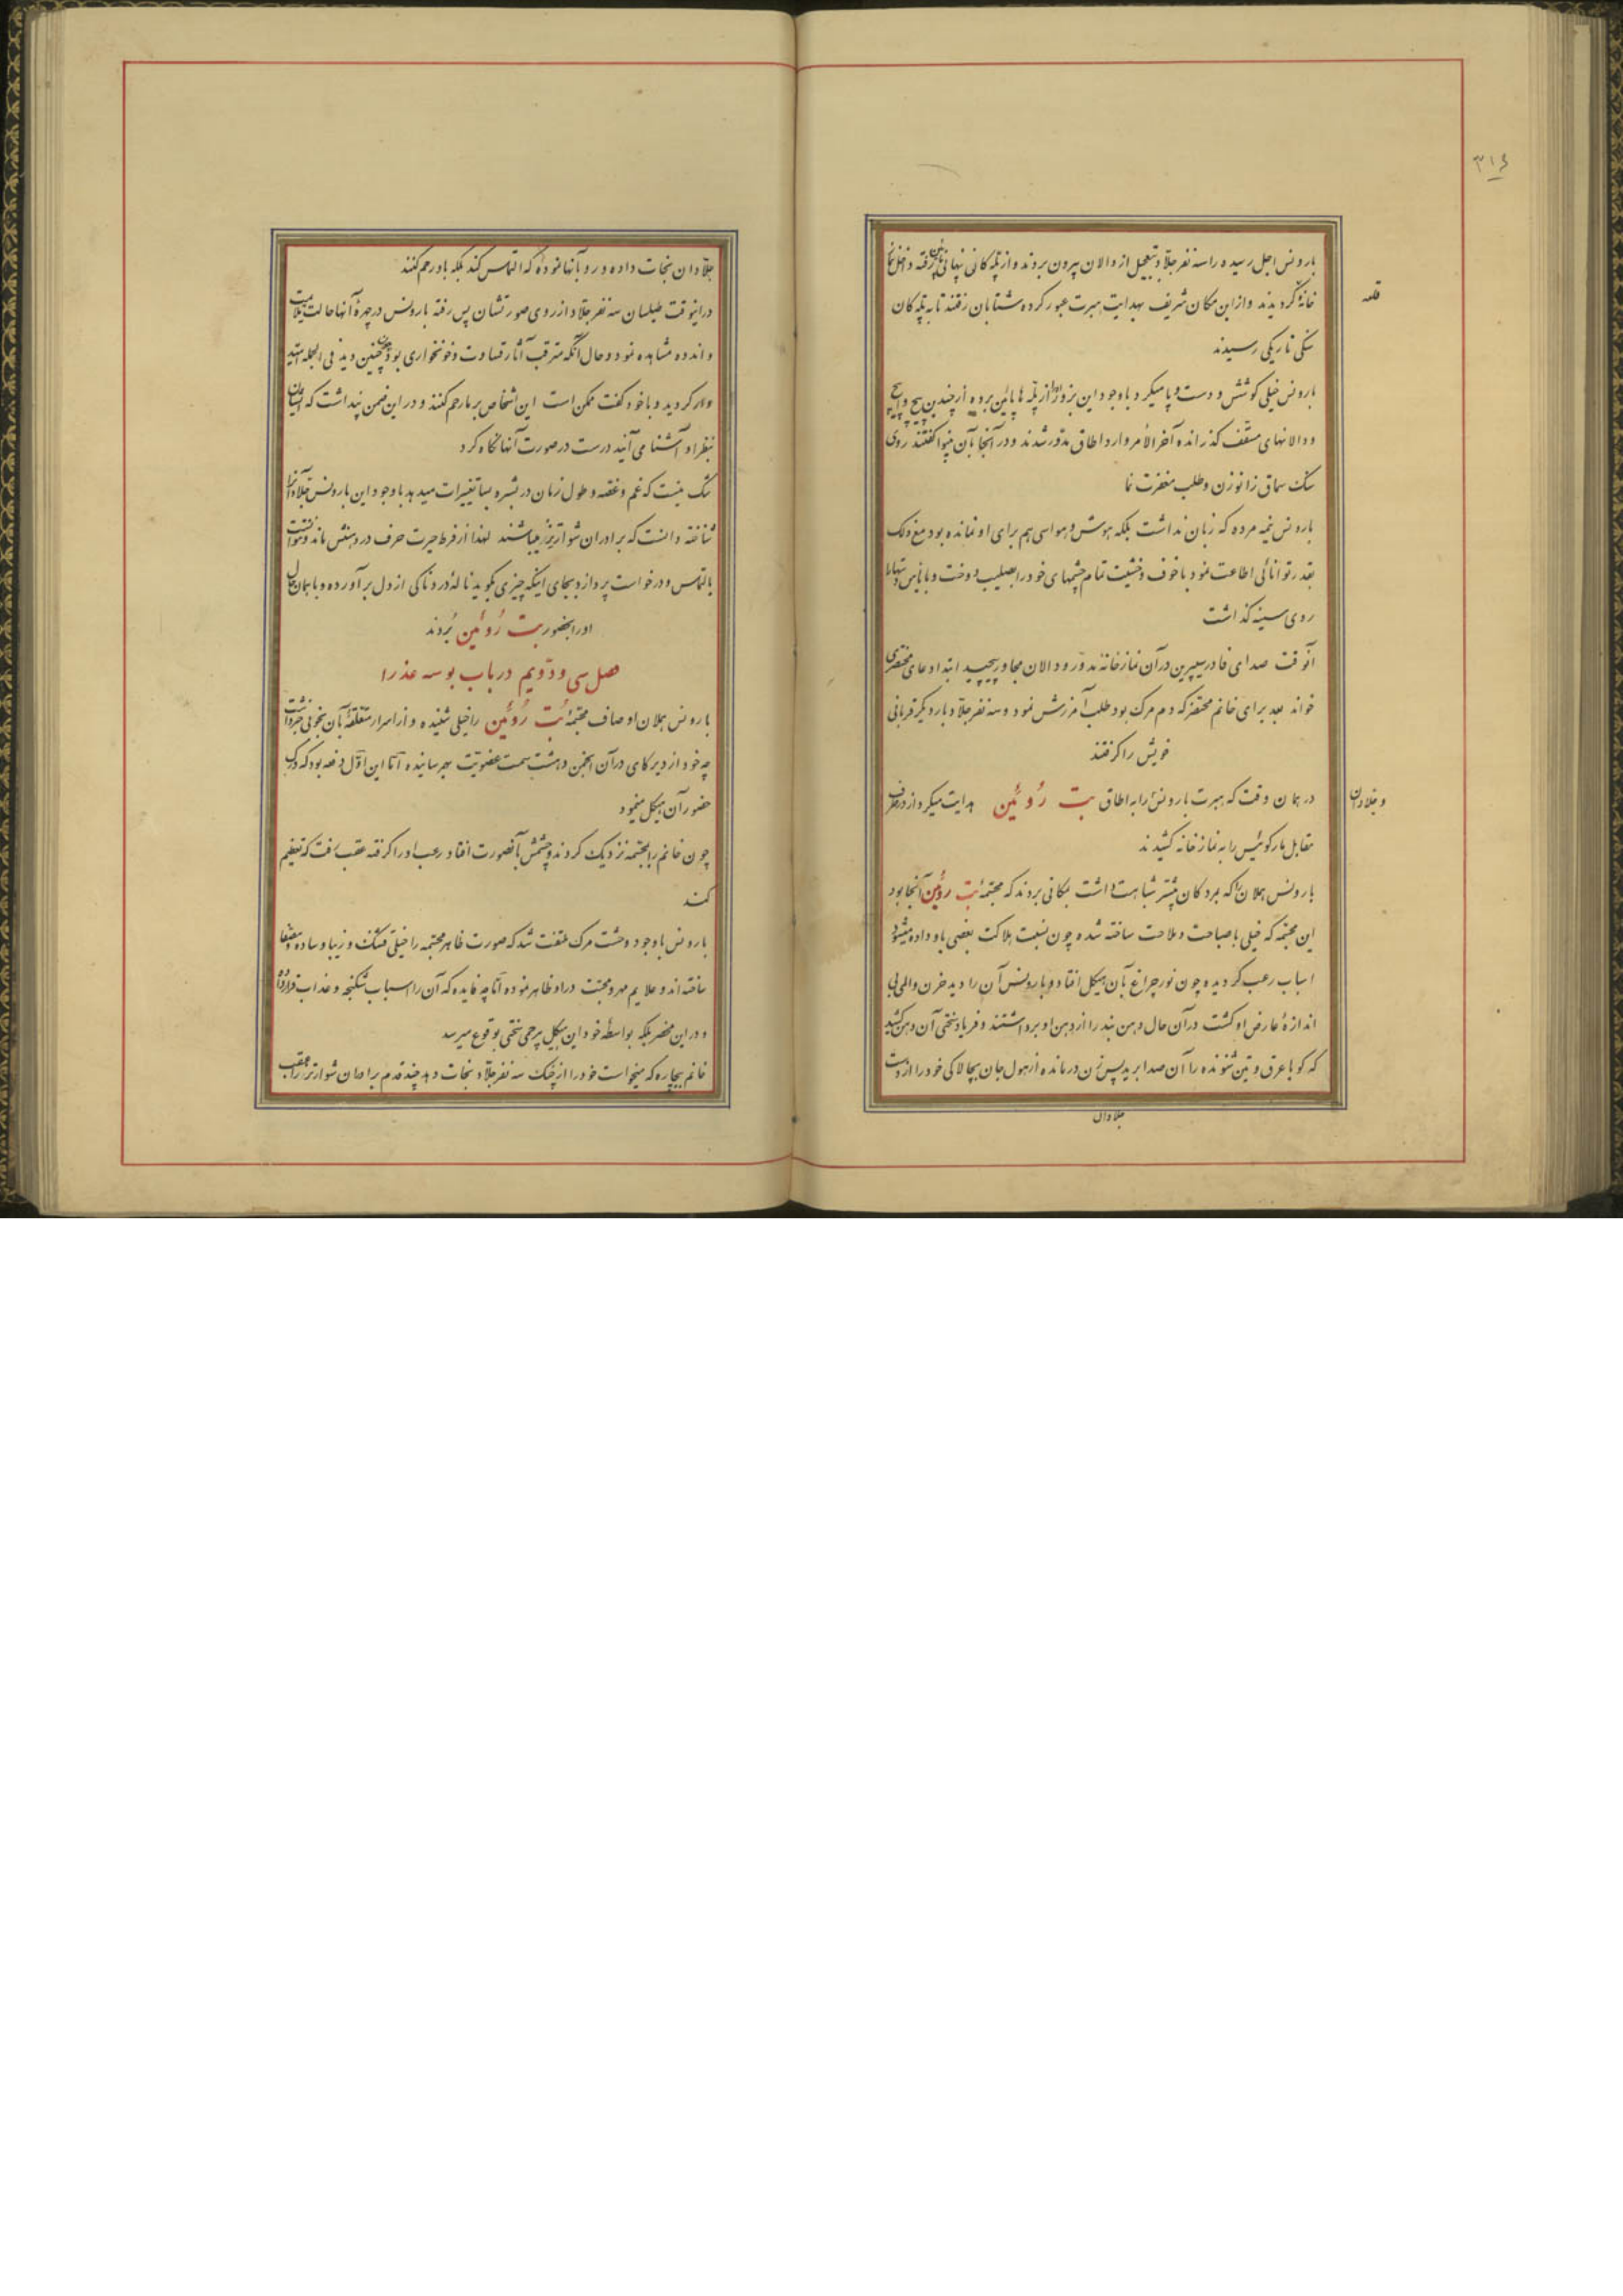 ۳۱۶
بارونس اجل رسیده را سه نفر جلاد بتعجیل از دالان بیرون بردند و از پله کانی نهانی پائین رفته داخل نماز
خانه گردیدند و از این مکان شریف بهدایت هبرت عبور کرده شتابان رفتند تا به پله کان
قلعه
سنگی تاریکی رسیدند
بارونس خیلی کوشش و دست و پا میکرد با وجود این بزور او را از پله ها پائین برده از چندین پیچ و اپیچ
و دالانهای مسقف گذرانده آخر الامر وارد اطاق مدور شدند و در آنجا بآن بینوا گفتند روی
سنگ سماق زانو زن و طلب مغفرت نما
بارونس نیمه مرده که زبان نداشت بلکه هوش و حواسی هم برای او نمانده بود مع ذلک
بقدر توانائی اطاعت نمود با خوف و خشیت تمام چشمهای خود را بصلیب دوخت و با یأس دستها را
روی سینه گذاشت
آنوقت صدای فادر سیپرین در آن نمازخانه مدور و دالان مجاور پیچید ابتدا دعای مختصری
خواند بعد برای خانم محتضر که دم مرگ بود طلب آمرزش نمود و سه نفر جلاد بار دیگر قربانی
خویش را گرفتند
در همان وقت که هبرت بارونس را به اطاق بت روئین هدایت میکرد از در طرف
و جلادان
مقابل مارکوئیس را به نمازخانه کشیدند
بارونس هملان را که بمردگان بیشتر شباهت داشت بمکانی بردند که مجتمهٔ بت روئین آنجا بود
این مجتمه که خیلی با صباحت و ملاحت ساخته شده چون نسبت هلاکت بعضی باو داده میشود
اسباب رعب گردیده و چون نور چراغ بآن هیکل افتاد و بارونس آن را دید حزن و المی بی
اندازه عارض او گشت در آن حال دهن بند را از دهن او برداشتند و فریاد سختی از آن دهن کشید
که گویا عرق وتین شنونده را آن صدا برید پس زن درمانده از هول جان بچالاکی خود را از دست
جلادان
جلادان نجات داده و رو بآنها نموده که التماس کند بلکه باو رحم کنند
در اینوقت طیلسان سه نفر جلاد از روی صورتشان پس رفته بارونس در چهرهٔ آنها حالت
و اندوه مشاهده نمود و حال آنکه مترقب آثار قساوت و خونخواری بود چون چنین دید فی الجمله امید
وار گردید و با خود گفت ممکن است این اشخاص بر ما رحم کنند و در این ضمن پنداشت که ایشان
بنظر او آشنا می آیند درست در صورت آنها نگاه کرد
شک نیست که غم و غصه و طول زمان در بشره بسا تغییرات میدهد با وجود این بارونس جلادان را
شناخته دانست که برادران شوارتزر میباشند لهذا از فرط حیرت حرف در دهنش ماند و نتوانست
بالتماس و درخواست پردازد و بجای اینکه چیزی بگوید نالهٔ دردناکی از دل برآورده و با همان حال
او را بحضور بت روئین بردند
فصل سی و دویم در باب بوسه عذرا
بارونس هملان اوصاف مجتمهٔ بت روئین را خیلی شنیده و از اسرار متعلقهٔ بآن بخوبی خبر داشت
چه خود از دیرگاهی در آن انجمن دهشت سمت عضویت بهم رسانیده اما این اول دفعه بود که درک
حضور آن هیکل مینمود
چون خانم را بمجتمه نزدیک کردند و چشمش بآنصورت افتاد رعب او را گرفته عقب رفت که تعظیم
کند
بارونس با وجود وحشت مرگ ملتفت شد که صورت ظاهر مجتمه را خیلی قشنگ و زیبا و ساده و باصفا
ساخته اند و علایم مهر و محبت در او ظاهر نموده اما چه فایده که آن را اسباب شکنجه و عذاب قرار داده
و در این محضر بلکه بواسطهٔ خود این هیکل بیرحمی سختی بوقوع میرسد
خانم بیچاره که میخواست خود را از چنگ سه نفر جلاد نجات دهد چند قدم برادران شوارتزر را بعقب